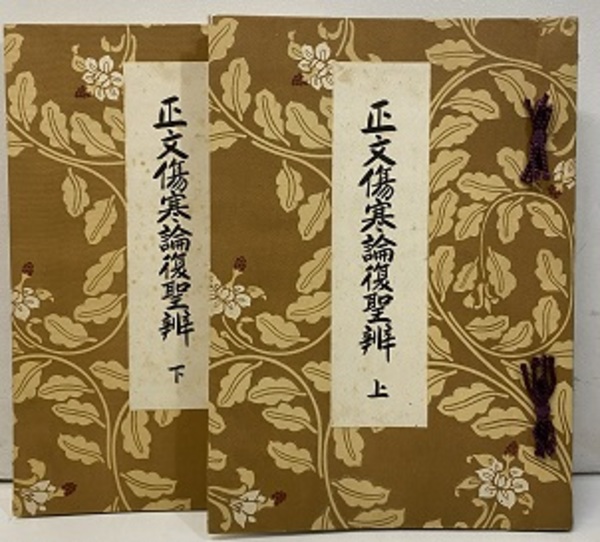 正文傷寒論復聖辨
上
正文傷寒論復聖辨
下